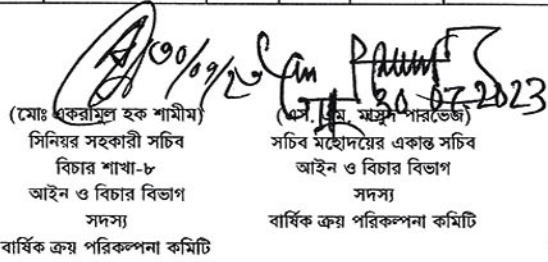 ৩০/০৭/২৩
30.07.2023
(মোঃ একরামুল হক শামীম)
সিনিয়র সহকারী সচিব
বিচার শাখা-৮
আইন ও বিচার বিভাগ
সদস্য
বার্ষিক ক্রয় পরিকল্পনা কমিটি
(এস. এম. মাসুদ পারভেজ)
সচিব মহোদয়ের একান্ত সচিব
আইন ও বিচার বিভাগ
সদস্য
বার্ষিক ক্রয় পরিকল্পনা কমিটি